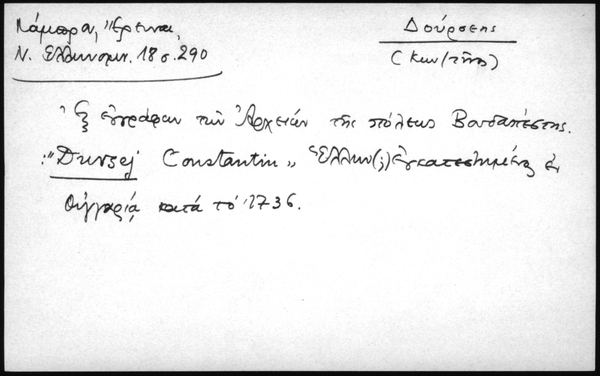 Λάμπρα, Ἔρευναι,
Ν. Ἑλληνομν. 18 σ. 290
Δούρσεης
(Κων/τῖνος)
Ἐξ ἐγγράφων τῶν Ἀρχειῶν τῆς πόλεως Βουδαπέστης.
:"Durzej Constantin" Ἕλλην(;) ἐγκατεστημένος ἐν
Οὑγγαρίᾳ κατά τό 1736.